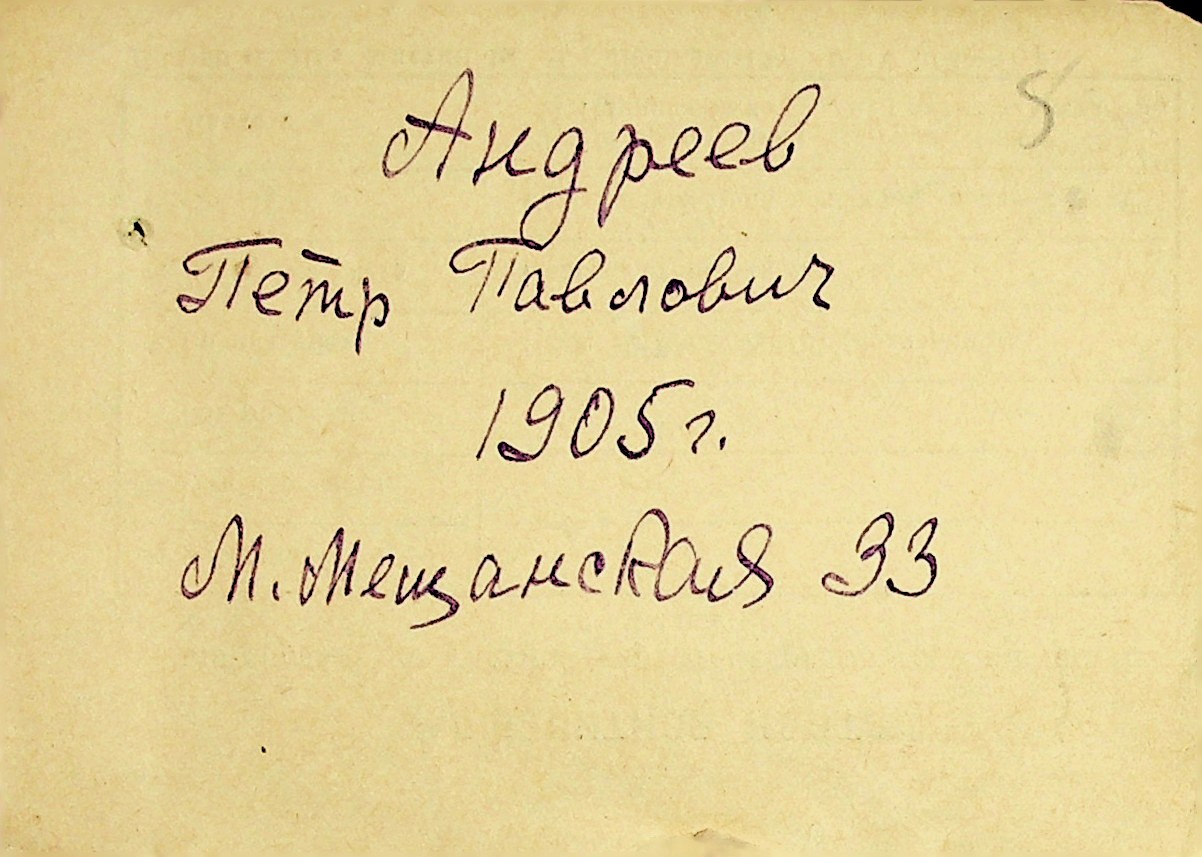 5
Андреев
Петр Павлович
1905 г.
М. Мещанская 33